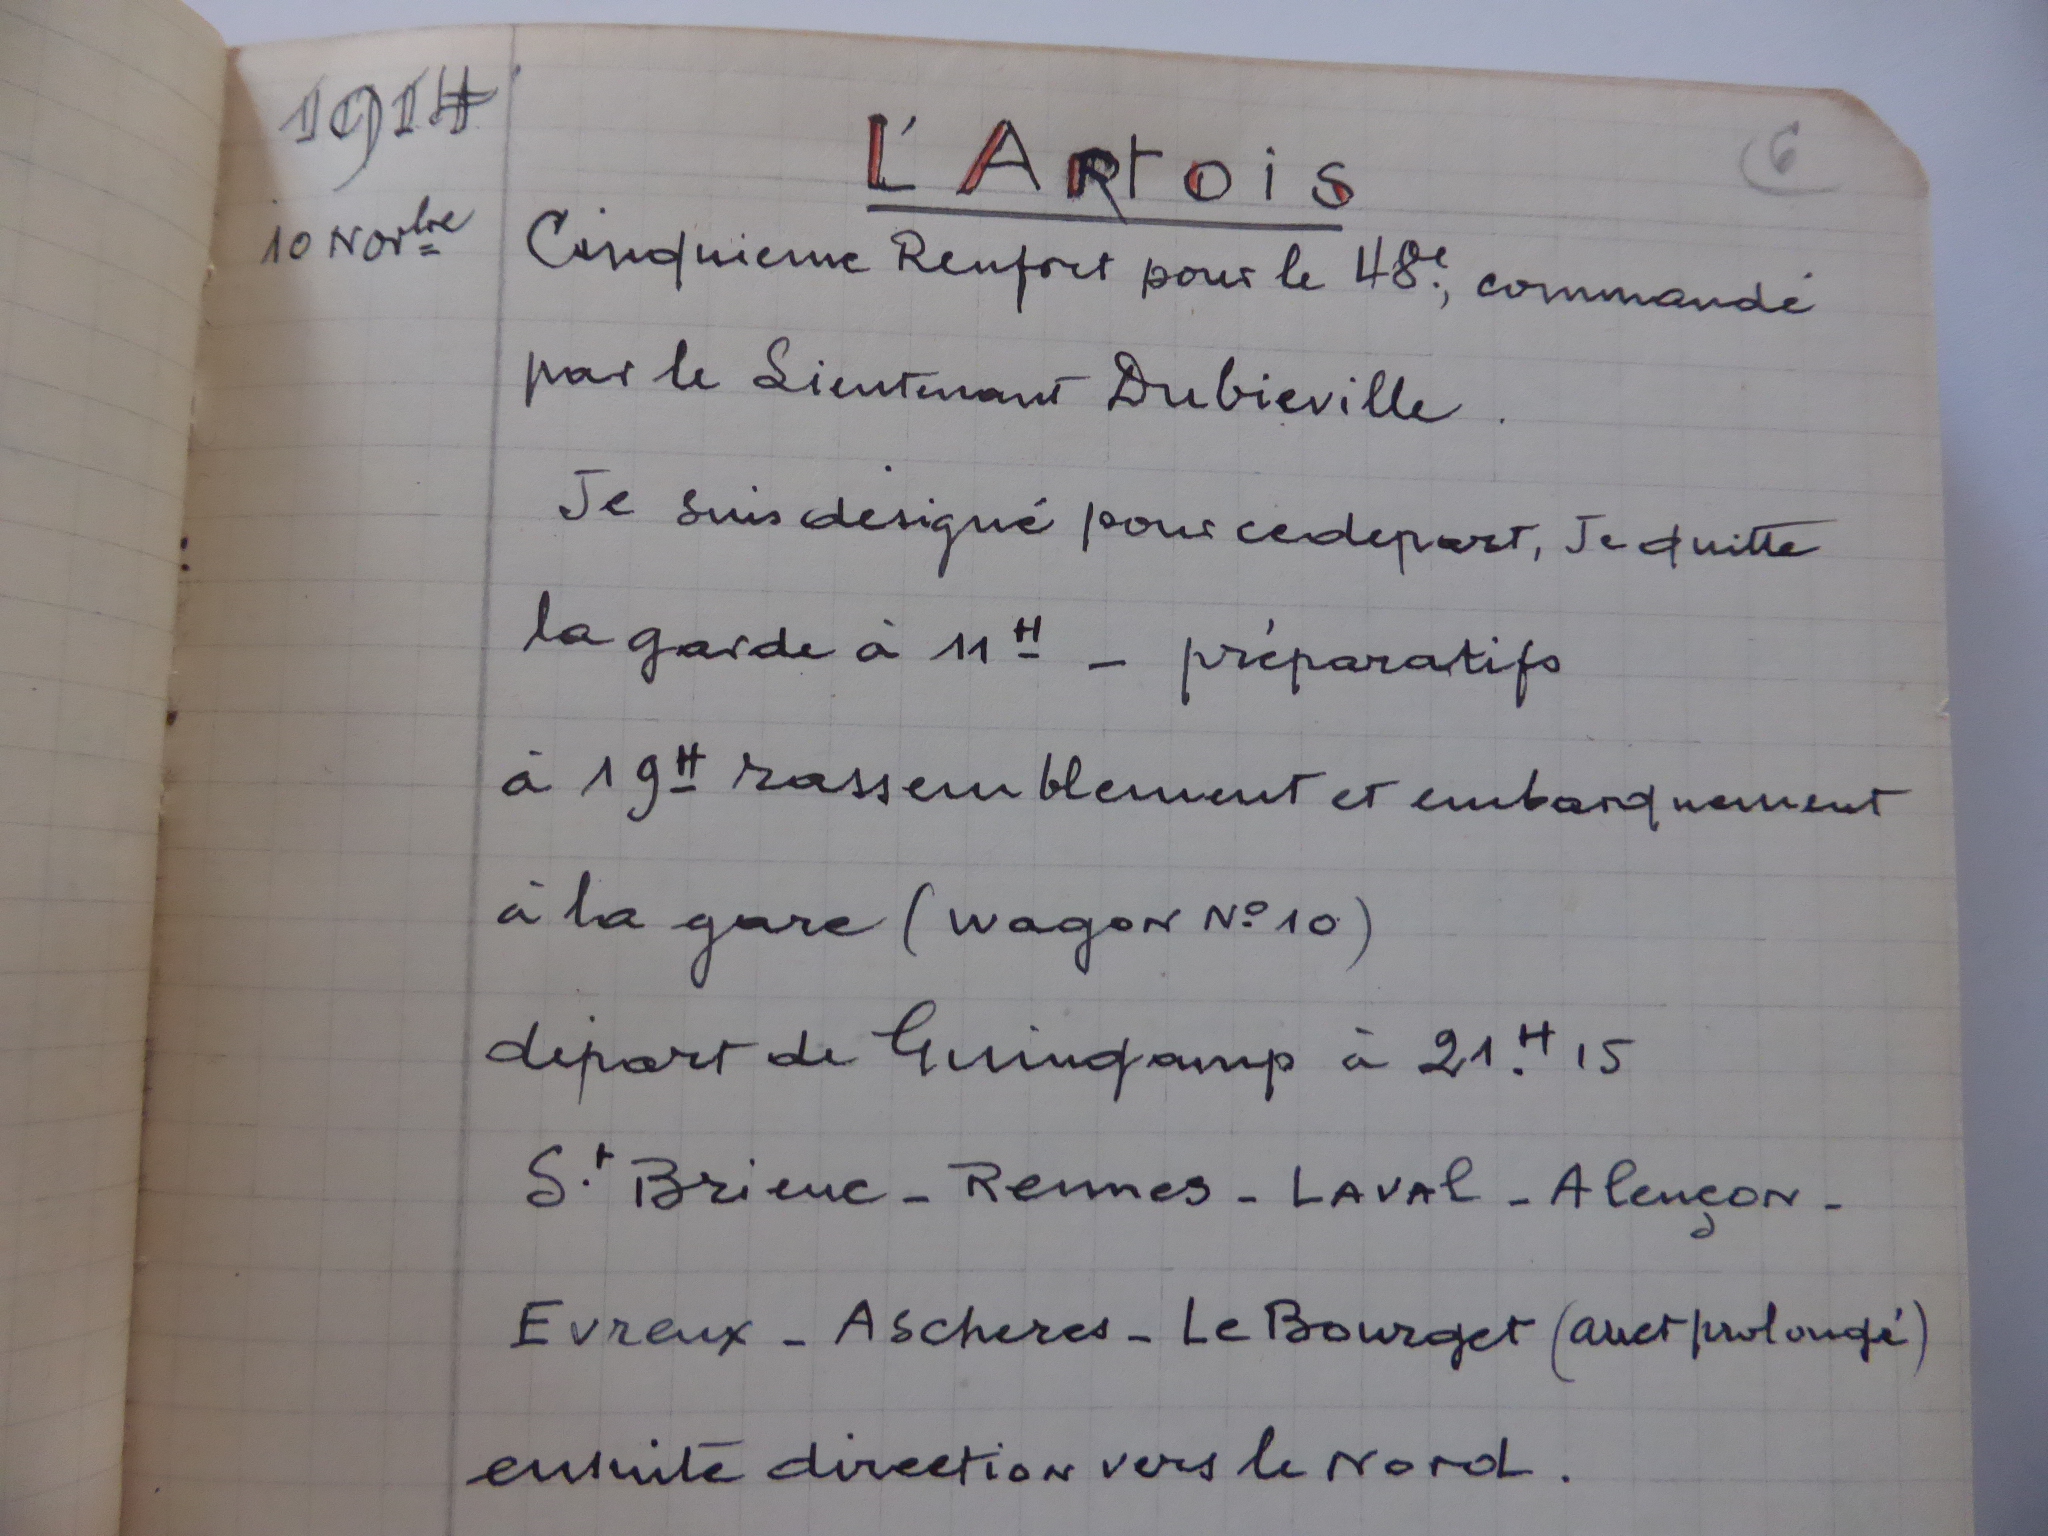 1914
L'Artois
6
10 Novbre
Cinquieme Renfort pour le 48e, commandé
par le Lieutenant Dubieville.
Je suis désigné pour ce depart, Je quitte
la garde à 11H - préparatifs
à 19H rassemblement et embarquement
à la gare (wagon No 10)
départ de Guingamp à 21.H 15
St Brieuc - Rennes - Laval - Alençon -
Evreux - Ascheres - Le Bourget (arret prolongé)
ensuite direction vers le Nord.